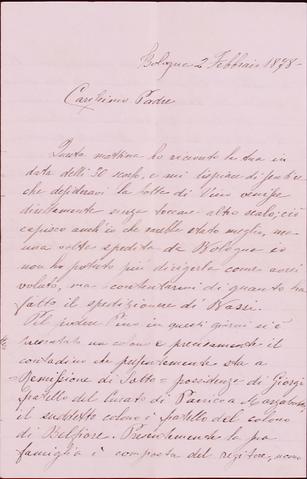 Bologna 2 Febbraio 1878 -
Carissimo Padre
Questa mattina ho ricevuto la tua in
data delli 30 scorso, e mi dispiace di
che desideravi la botte di Vino venisse
direttamente senza toccare altro scalo, ciò
capisco anch'io che sarebbe stato meglio, ma
una volta spedita da Bologna io
non ho potuto più dirigerla come avrei
voluto, ma contentarmi di quanto ha
fatto il spedizioniere di Nassi.
Pel podere Pino in questi giorni si è
presentato un colono e precisamente il
contadino che presentemente sta a
Remissione di Sotto = possidenza di Giorgi
fratello del Curato di Panico a Marzabotto,
il suddetto colono è fratello del colono
di Belfiore. Presentemente la sua
famiglia è composta del regitore, uomo